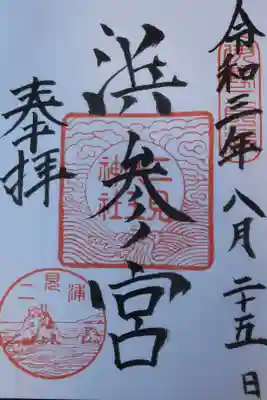 令和三年八月二十五日
浜参宮
奉拝
二見
神社
二見浦